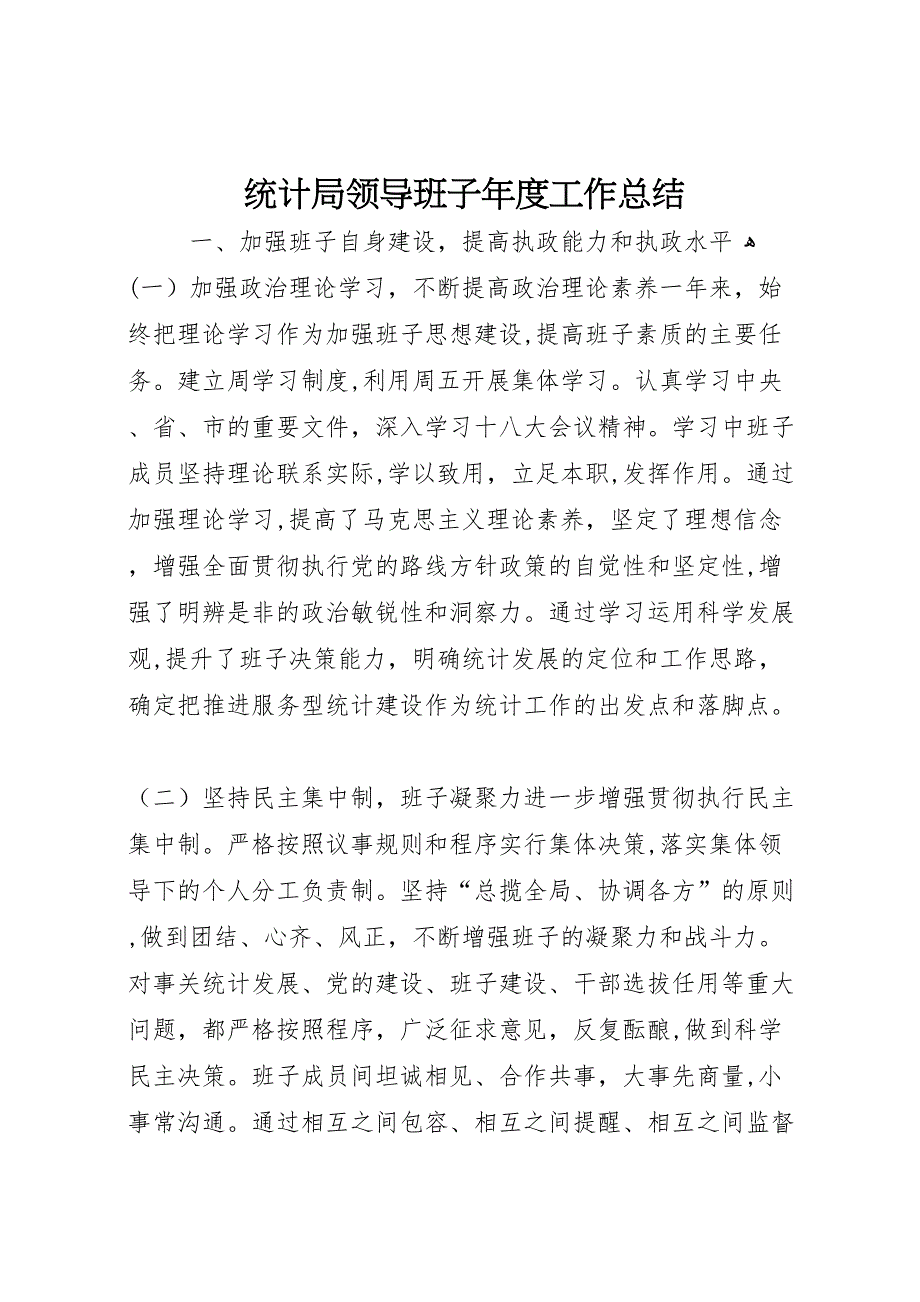 统计局领导班子年度工作总结
一、加强班子自身建设，提高执政能力和执政水平 ﻫ
(一）加强政治理论学习，不断提高政治理论素养一年来，始
终把理论学习作为加强班子思想建设,提高班子素质的主要任
务。建立周学习制度,利用周五开展集体学习。认真学习中央
、省、市的重要文件，深入学习十八大会议精神。学习中班子
成员坚持理论联系实际,学以致用，立足本职,发挥作用。通过
加强理论学习,提高了马克思主义理论素养，坚定了理想信念
，增强全面贯彻执行党的路线方针政策的自觉性和坚定性,增
强了明辨是非的政治敏锐性和洞察力。通过学习运用科学发展
观,提升了班子决策能力，明确统计发展的定位和工作思路，
确定把推进服务型统计建设作为统计工作的出发点和落脚点。
（二）坚持民主集中制，班子凝聚力进一步增强贯彻执行民主
集中制。严格按照议事规则和程序实行集体决策,落实集体领
导下的个人分工负责制。坚持“总揽全局、协调各方”的原则
,做到团结、心齐、风正，不断增强班子的凝聚力和战斗力。
对事关统计发展、党的建设、班子建设、干部选拔任用等重大
问题，都严格按照程序，广泛征求意见，反复酝酿,做到科学
民主决策。班子成员间坦诚相见、合作共事，大事先商量,小
事常沟通。通过相互之间包容、相互之间提醒、相互之间监督